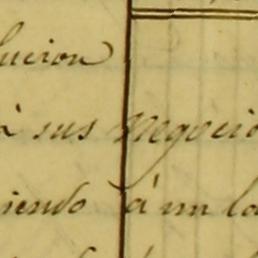 lucion
à sus negocio
iendo á un la